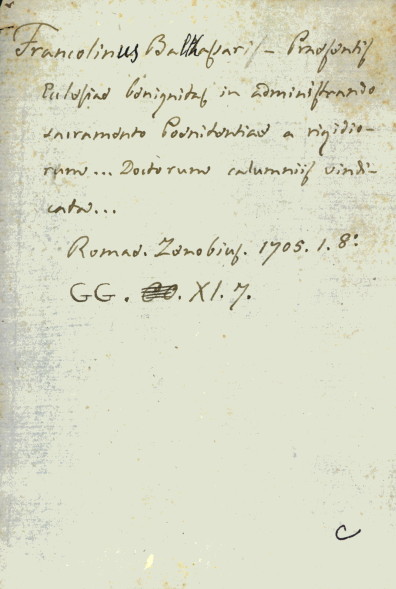 Francolinus Balthasaris – Praesentis
Eclesiae benignitas in administrando
sacramento Poenitentiae a rigidio-
rum... Doctorum calumniis vindi-
cata...
Romae. Zenobius. 1705. 1. 8°
GG. XI. 7.
C